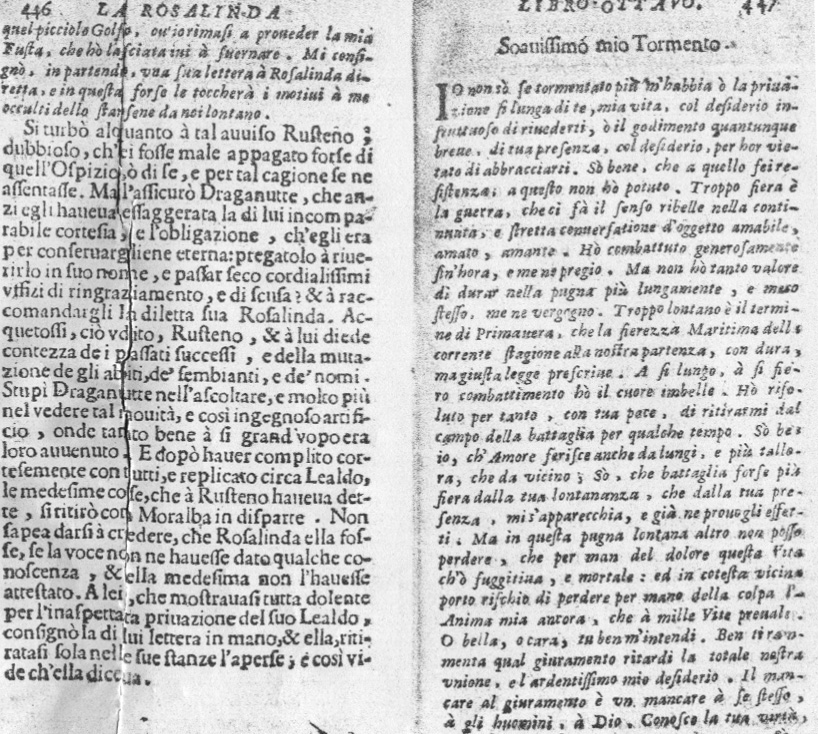 446 LA ROSALINDA
quel picciolo Golfo, ou'io rimasi a proueder la mia
Fusta, che hò lasciata iui à suernare. Mi consi-
gnò, in partendo, vna sua lettera à Rosalinda di-
retta, e in questa forse le toccherà i motiui à me
occulti dello starsene da noi lontano.
Si turbò alquanto à tal auuiso Rusteno;
dubbioso, ch'ei fosse male appagato forse di
quell'Ospizio, ò di se, e per tal cagione se ne
assentasse. Ma l'assicurò Draganutte, che an-
zi egli haueua essaggerata la di lui incompa-
rabile cortesia, e l'obligazione, ch'egli era
per conseruargliene eterna: pregatolo à riue-
rirlo in suo nome, e passar seco cordialissimi
vffizi di ringraziamento, e di scusa: & à rac-
comandargli la diletta sua Rosalinda. Ac-
quetossi, ciò vdito, Rusteno, & à lui diede
contezza de i passati successi, e della muta-
zione de gli abiti, de' sembianti, e de' nomi.
Stupì Draganutte nell'ascoltare, e molto più
nel vedere tal nouità, e così ingegnoso artifi-
cio, onde tanto bene à sì grand'vopo era
loro auuenuto. E dopò hauer complito cor-
tesemente con tutti, e replicato circa Lealdo,
le medesime cose, che à Rusteno haueua det-
te, si ritirò con Moralba in disparte. Non
sapea darsi à credere, che Rosalinda ella fos-
se, se la voce non ne hauesse dato qualche co-
noscenza, & ella medesima non l'hauesse
attestato. A lei, che mostrauasi tutta dolente
per l'inaspettata priuazione del suo Lealdo,
consignò la di lui lettera in mano, & ella, riti-
ratasi sola nelle sue stanze l'aperse; e così vi-
de ch'ella diceua.
LIBRO OTTAVO. 447
Soauissimo mio Tormento.
IO non sò, se tormentato più m'habbia ò la priua-
zione sì lunga di te, mia vita, col desiderio in-
fruttuoso di riuederti, ò il godimento quantunque
breue, di tua presenza, col desiderio, per hor vie-
tato di abbracciarti. Sò bene, che a quello fei re-
sistenza, a questo non hò potuto. Troppo fiera è
la guerra, che ci fà il senso ribelle nella conti-
nuata, e stretta conuersatione d'oggetto amabile,
amato, amante. Hò combattuto generosamente
sin'hora, e me ne pregio. Ma non hò tanto valore
di durar nella pugna più lungamente, e meco
stesso, me ne vergogno. Troppo lontano è il termi-
ne di Primauera, che la fierezza Maritima della
corrente stagione alla nostra partenza, con dura,
ma giusta legge prescriue. A sì lungo, à sì fie-
ro combattimento hò il cuore imbelle. Hò riso-
luto per tanto, con tua pace, di ritirarmi dal
campo della battaglia per qualche tempo. Sò ben
io, ch'Amore ferisce anche da lungi, e più tallo-
ra, che da vicino; Sò, che battaglia forse più
fiera dalla tua lontananza, che dalla tua pre-
senza, mi s'apparecchia, e già ne prouo gli effet-
ti. Ma in questa pugna lontana altro non posso
perdere, che per man del dolore questa Vita
ch'ò fuggitiua, e mortale: ed in cotesta vicina
porto rischio di perdere per mano della colpa l'
Anima mia ancora, che à mille Vite preuale.
O bella, o cara, tu ben m'intendi. Ben ti ram-
menta qual giuramento ritardi la totale nostra
vnione, e l'ardentissimo mio desiderio. Il man-
care al giuramento è vn mancare à se stesso,
à gli huomini, à Dio. Conosco la tua virtù,